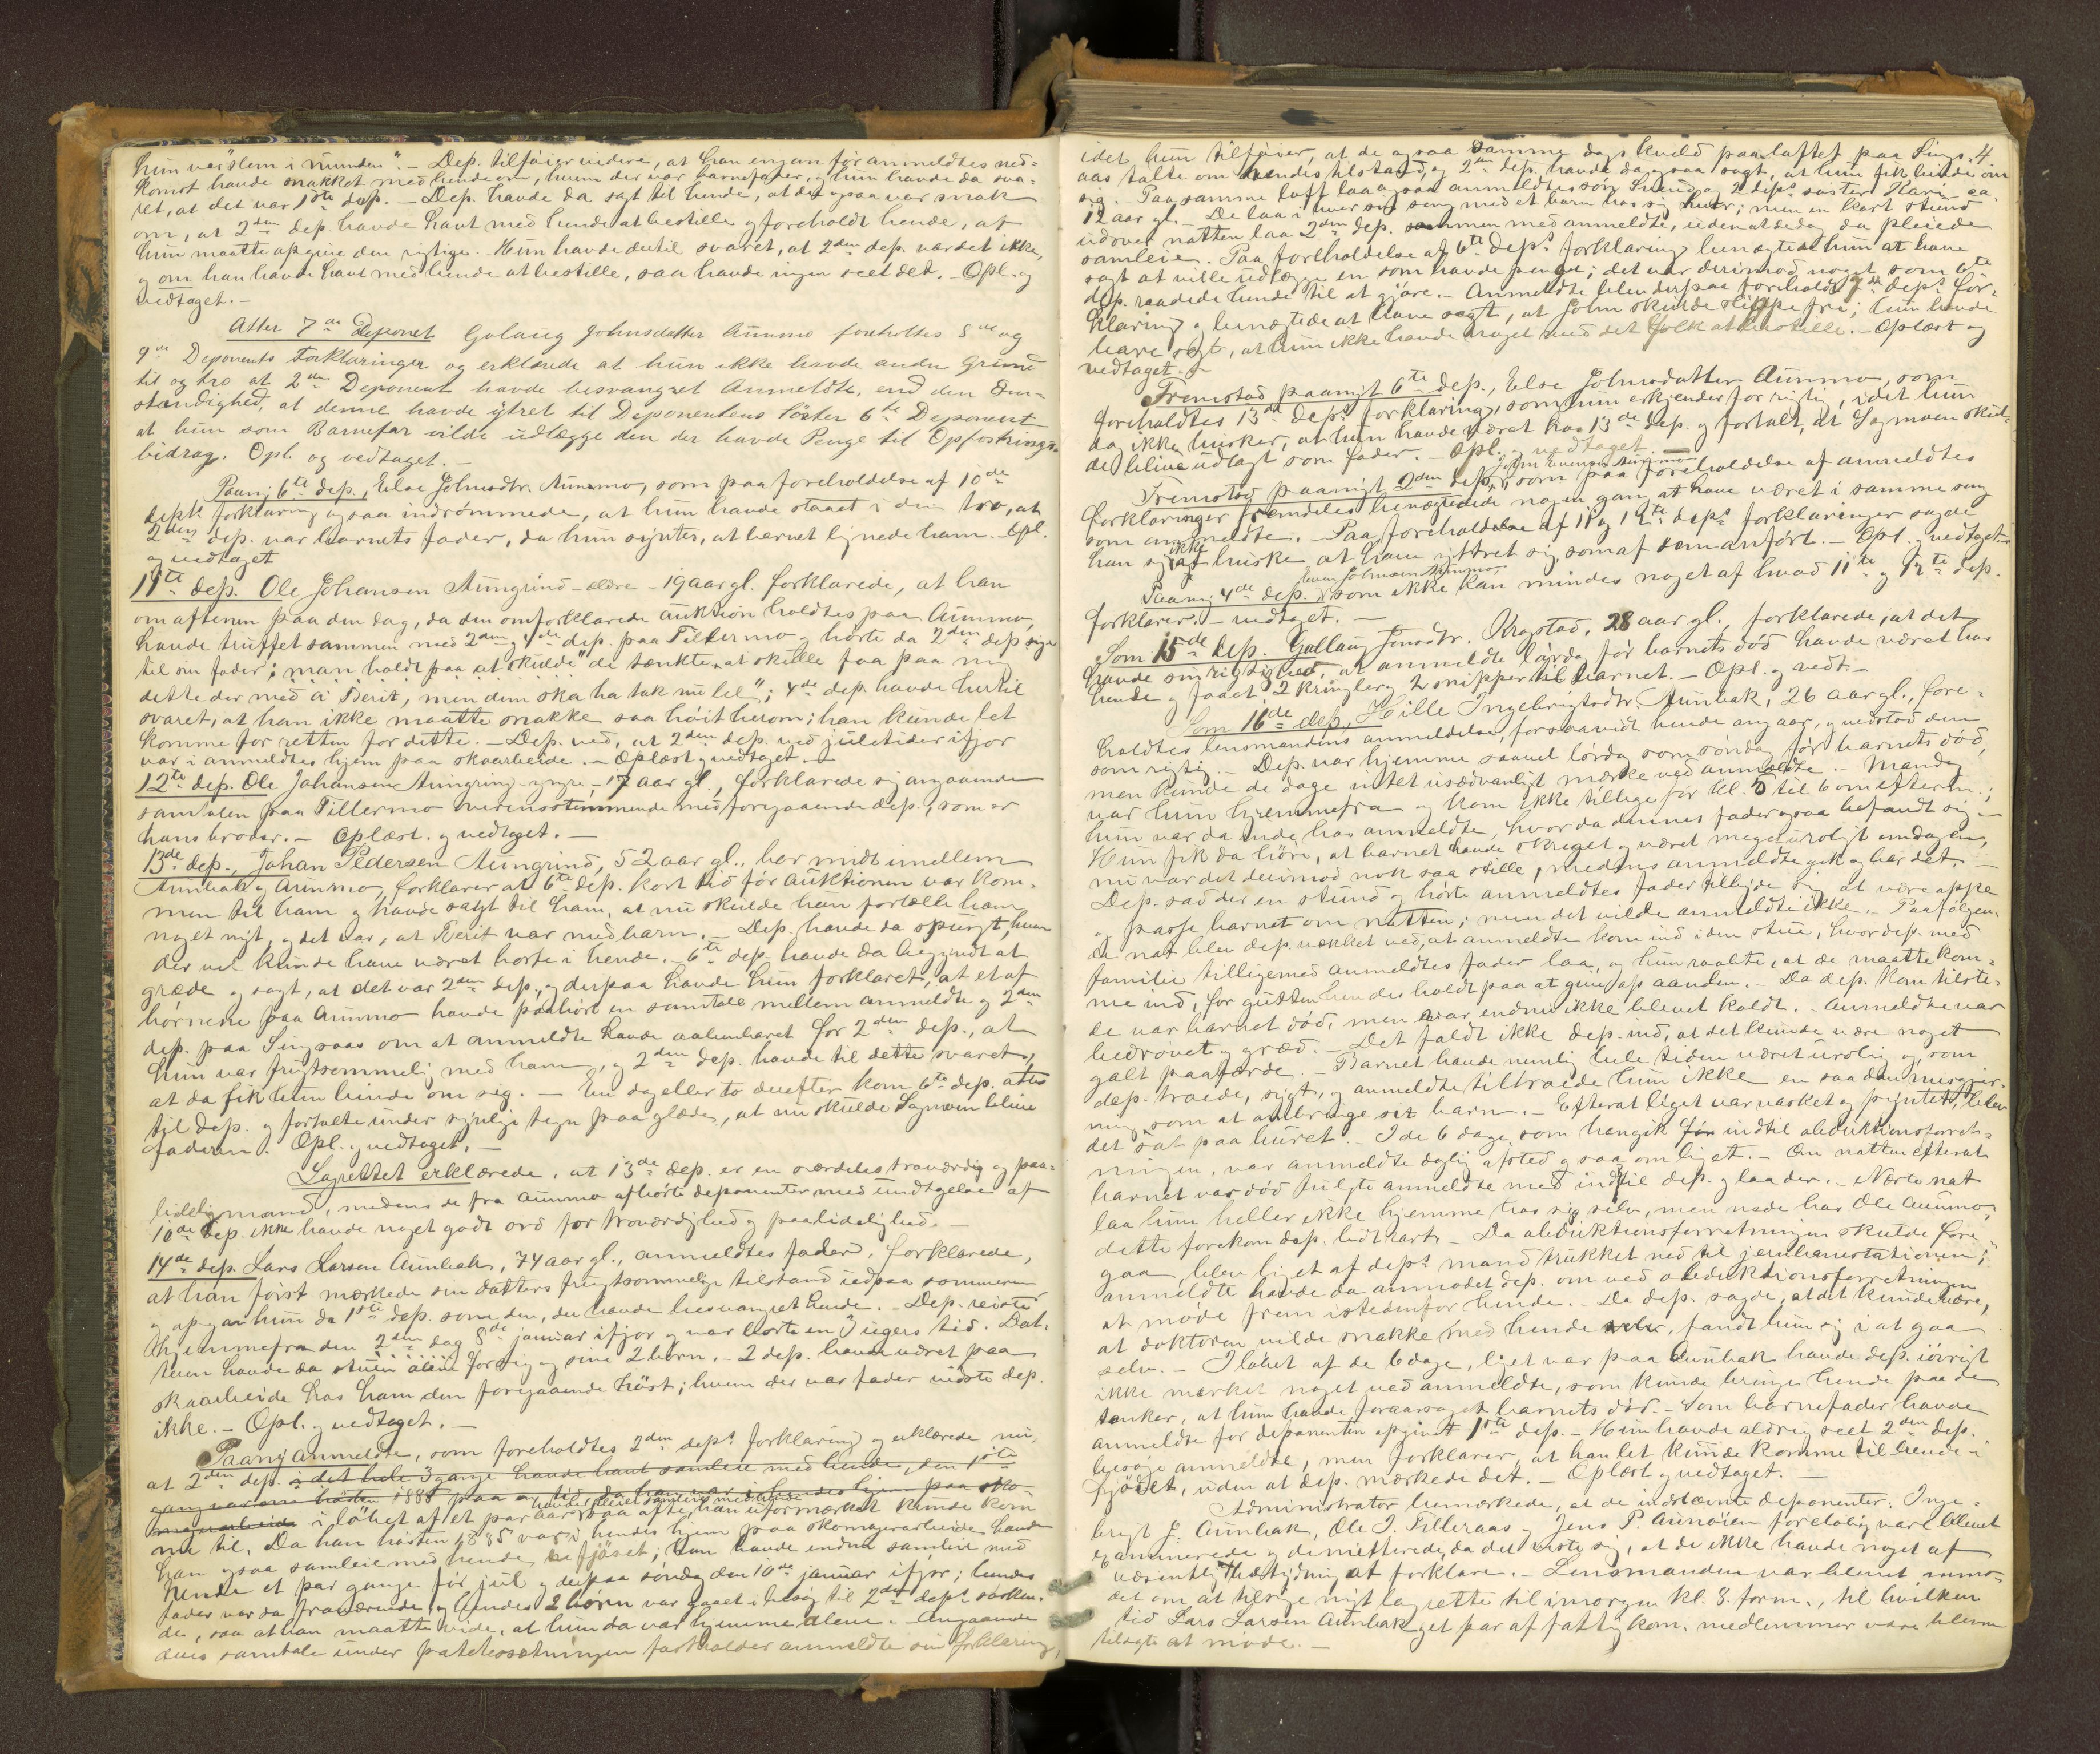 hun var "slem i munden". - Dep. tilføier videre, at han engang før anmeldtes ned=
komst havde snakket med hende om, hvem der var barnefader, og hun havde da sva=
ret, at det var 1ste dep. - Dep. havde da sagt til hende, at der ogsaa var snak
om, at 2den dep. havde havt med hende at bestille og foreholdt hende, at
hun maatte opgive den rigtige. Hun havde dertil svaret, at 2den dep. var det ikke,
og om han havde havt med hende at bestille, saa havde ingen seet det. - Opl. og
vedtaget. -
Atter 7de Deponent Golaug Johnsdatter Aunmo foreholtes 5te og
9de Deponents Forklaringer og erklærede at hun ikke havde anden Grund
til og tro at 2den Deponent havde besvangret Anmeldte, end den Om=
stændighed, at denne havde ytret til Deponentens Søster 6te Deponent
at hun som Barnefar vilde udlægge den der havde Penge til Opfostrings=
bidrag. Opl. og vedtaget. -
Paany 6te dep., Else Johnsdtr. Aunmo, som paa foreholdelse af 10de
dept.s forklaring ogsaa indrømmede, at hun havde staaet i den tro, at
2den dep. var barnets fader, da hun syntes, at barnet lignede ham. - Opl.
og vedtaget
11te dep. Ole Johansen Aungrind - ældre - 19 aar gl. forklarede, at han
om aftenen paa den dag, da den omforklarede auktion holdtes paa Aunmo,
havde truffet sammen med 2den og 4de dep. paa Tillermo og hørte da 2den dep. sige
til sin fader: "man holdt paa at skulde" de tænkte at skulle faa paa mig
dette der med a' Berit, men dem ska ha tak nu lel"; 4de dep. havde hertil
svaret, at han ikke maatte snakke saa høit herom; han kunde let
komme for retten for dette. - Dep. ved, at 2den dep. ved juletider ifjor
var i anmeldtes hjem paa skoarbeide. - Oplæst og vedtaget. -
12te dep. Ole Johansen Aungrind - yngre - 17 aar gl., forklarede sig angaaende
samtalen paa Tillermo overensstemmende med foregaaende dep., som er
hans broder. - Oplæst og vedtaget. -
13de dep., Johan Pedersen Aungrind, 52 aar gl., bor midt imellem
Aunbak og Aunmo, forklarer at 6te dep. kort tid før auktionen var kom=
men til ham og havde sagt til ham, at nu skulde han fortælle ham
noget nyt, og det var, at Berit var med barn. - Dep. havde da spurgt, hvem
der vel kunde have været borte i hende. - 6te dep. havde da begyndt at
græde og sagt, at det var 2den dep., og derpaa havde hun forklaret, at et af
børnene paa Aunmo havde paahørt en samtale mellem anmeldte og 2den
dep. paa Singsaas om at anmeldte havde aabenbaret for 2den dep., at
hun var frugtsommelig med ham, og 2den dep. havde til dette svaret,
at da fik hun binde om sig. - En dag eller to derefter kom 6te dep. atter
til dep. og fortalte under synlige tegn paa glæde, at nu skulde Sagmoen blive
faderen. Opl. og vedtaget. -
Lagrettet erklærede, at 13de dep. er en særdeles troværdig og paa=
lidelig mand, medens de fra Aunmo afhørte deponenter med undtagelse af
10de dep. ikke havde noget godt ord for troværdighed og paalidelighed. -
14de dep. Lars Larsen Aunbak, 74 aar gl., anmeldtes fader, forklarede,
at han først mærkede sin datters frugtsommelige tilstand udpaa sommeren
og opgav hun da 1ste dep. som den, der havde besvangret hende. - Dep. reiste
hjemmefra den 2den dag 5de januar ifjor og var borte en 3 ugers tid. Dat=
teren havde da stuen alene for sig og sine 2 børn. - 2 dep. havde været paa
skoarbeide hos ham den foregaaende høst; hvem der var fader vidste dep.
ikke. - Opl. og vedtaget. -
Paany anmeldte, som foreholdtes 2den dep.s forklaring og erklærede nu,
at 2den dep. i det hele 3 gange havde havt samleie med hende, den 1ste
gang var om høsten 1885 paa en tid, da han var i hendes hjem paa sko=
magerarbeide i løbet af et par aar havde pleiet samleie med hende saa ofte, han uformærket kunde kom=
me til. Da han høsten 1885 var i hendes hjem paa skomagerarbeide havde
han ogsaa samleie med hende i fjøset; han havde endnu samleie med
hende et par gange før jul og derpaa søndag den 10de januar ifjor; hendes
fader var da fraværende og hendes 2 børn var gaaet i besøg til 2den dep.s søsken=
de, saa at han maatte vide, at hun da var hjemme alene. - Angaaende
deres samtale under potetessætningen fastholder anmeldte sin forklaring,
4
idet hun tilføier, at de ogsaa samme dags kveld paa loftet paa Sings=
aas talte om hendes tilstand, og 2den dep. havde da ogsaa sagt, at hun fik binde om
sig. Paa samme loft laa ogsaa anmeldtes søn Svend og 2 dep.s søster Kari ca
12 aar gl. De laa i hver sin seng med et barn hos sig hver; men en kort stund
udover natten laa 2den dep. sammen med anmeldte, uden at de dog da pleiede
samleie. Paa foreholdelse af 6te dep.s forklaring benægtede hun at have
sagt at ville udlægge en som havde penge; det var derimod noget som 6te
dep. raadede hende til at gjøre. - Anmeldte blev derpaa foreholdt 7de dep.s for=
klaring og benægtede at have sagt, at John skulde slippe fri; hun havde
bare sagt, at hun ikke havde noget med det folk at bestille. - Oplæst og
vedtaget. -
Fremstod paanyt 6te dep., Else Johnsdatter Aunmo, som
foreholdtes 13de dep.s forklaring, som hun erkjender for rigtig, idet hun
dog ikke husker, at hun havde været hos 13de dep. og fortalt, at Sagmoen skul=
de blive udlagt som fader. - Opl. og vedtaget
Fremstod paanyt 2den dep., John Evensen Aunmo som paa foreholdelse af anmeldtes
forklaringer fremdeles benægtede nogen gang at have været i samme seng
som anmeldte. - Paa foreholdelse af 11 og 12te dep.s forklaringer sagde
han sig ikke at huske at have yttret sig som af dem anført. - Opl. og vedtaget. -
Paany 4de dep. Even Johnsen Aunmo som ikke kan mindes noget af hvad 11te og 12te dep.
forklarer. - vedtaget. -
Som 15de dep. Gullaug Jonsdtr. Krogstad, 28 aar gl., forklarede, at det
havde sin rigtighed, at anmeldte lørdag før barnets død havde været hos
hende og faaet 2 kringler og 2 snipper til barnet. - Opl. og vedt. -
Som 16de dep. Hille Ingebrigtsdtr. Aunbak, 26 aar gl., fore=
holdtes lensmandens anmeldelse, forsaavidt hende angaar, og vedstod den
som rigtig. - Dep. var hjemme saavel lørdag som søndag før barnets død,
men kunde de dage intet usædvanligt mærke ved anmeldte. - Mandag
var hun hjemmefra og kom ikke tilbage før kl. 5 til 6 om efterm.;
hun var da inde hos anmeldte, hvor da dennes fader ogsaa befandt sig. -
Hun fik da høre, at barnet havde skreget og været meget uroligt om dagen,
nu var det derimod nok saa stille, medens anmeldte gik og bar det. -
Dep. sad der en stund og hørte anmeldtes fader tilbyde sig at være oppe
og passe barnet om natten; men det vilde anmeldte ikke. - Paafølgen=
de nat blev dep. vækket ved, at anmeldte kom ind i den stue, hvor dep. med
familie tilligemed anmeldtes fader laa, og hun raabte, at de maatte kom=
me ind, for gutten hendes holdt paa at give op aanden. - Da dep. kom tilste=
de var barnet død, men var endnu ikke blevet koldt. - Anmeldte var
bedrøvet og græd. - Det faldt ikke dep. ind, at det kunde være noget
galt paafærde. - Barnet havde nemlig hele tiden været urolig og, som
dep. troede, sygt, og anmeldte tiltroede hun ikke en saadan misgjer=
ning som at ombringe sit barn. - Efterat liget var vasket og pyntet, blev
det sat paa buret. - I de 6 dage, som hengik før indtil obduktionsforret=
ningen, var anmeldte daglig afsted og saa om liget. - Om natten efterat
barnet var død fulgte anmeldte med ind til dep. og laa der. - Næste nat
laa hun heller ikke hjemme hos sig selv, men nede hos Ole Aunmo;
dette forekom dep. lidt rart. - Da obduktionsforretningen skulde fore=
gaa, blev liget af dep.s mand trukket ned til jernbanestationen;
anmeldte havde da anmodet dep. om ved obduktionsforretningen
at møde frem istedenfor hende. - Da dep. sagde, at det kunde være,
at doktoren vilde snakke med hende selv, fandt hun sig i at gaa
selv. - I løbet af de 6 dage, liget var paa Aunbak havde dep. iøvrigt
ikke mærket noget ved anmeldte, som kunde bringe hende paa de
tanker, at hun havde foraarsaget barnets død. - Som barnefader havde
anmeldte for deponenten opgivet 1ste dep. - Hun havde aldrig seet 2den dep.
besøge anmeldte, men forklarer, at han let kunde komme til hende i
fjøset, uden at dep. mærkede det. - Oplæst og vedtaget. -
Administrator bemærkede, at de indstevnte deponenter: Inge=
brigt J. Aunbak, Ole J. Tilleraas og Jens P. Aunøien foreløbig vare blevet
examinerede og dimitterede, da det viste sig, at de ikke havde noget af
væsentlig betydning at forklare. - Lensmanden var blevet anmo=
det om at tilsige nyt lagrette til imorgen kl. 8 form., til hvilken
tid Lars Larsen Aunbak og et par af fattigkom. medlemmer vare blevne
tilsagte at møde. -